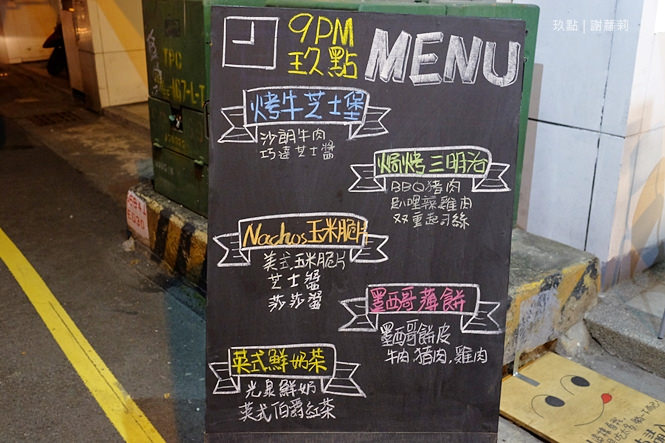 玖點 | 謝蘿莉
9PM
玖點
MENU
烤牛芝士堡
沙朗牛肉
巧達芝士醬
焗烤三明治
BBQ豬肉
趴哩辣雞肉
双重起司絲
Nachos玉米脆片
美式玉米脆片
芝士醬
莎莎醬
墨西哥薄餅
墨西哥餅皮
牛肉,豬肉,雞肉
英式鮮奶茶
光泉鮮奶
英式伯爵紅茶
TPC